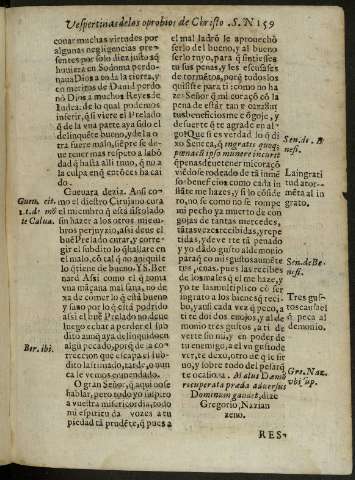 Vespertinas de los oprobios de Christo. S. N 159
donar muchas virtudes por
algunas negligencias pre-
sentes por solo diez justo q̃
houiera en Sodoma perdo-
naua Dios a toda la tierra, y
en meritos de Dauid perdo
nò Dios a muchos Reyes de
Iudea. de lo qual podemos
inferir, q̃ si viere el Prelado
q̃ de la vna parte aya sido el
delinquẽte bueno, y de la o
tra fuere malo, siẽpre se de-
ue tener mas respeto a la bõ
dad q̃ hasta alli tuuo, q̃ no a
la culpa en q̃ entõces ha cai
do.
Gueuara dezia. Ansi co-
mo el diestro Cirujano cura
el miembro q̃ està fistolado
sin hazer a los otros miem-
bros perjuyzio, assi deue el
buẽ Prelado curar, y corre-
gir el subdito lo q̃ hallare en
el malo, cõ tal q̃ no aniquile
lo q̃ tiene de bueno. Y S. Ber
nard Assi como el q̃ toma
vna mãçana mal sana, no de
xa de comer lo q̃ està bueno
y sano por lo q̃ està podrido
assi el buẽ Prelado no deue
luego echar a perder el sub
dito aunq̃ aya delinquido en
algũ pecado, porq̃ de la co-
rreccion que escapa el sub-
dito lastimado, tarde, o nun
ca le vemos enmendado.
O gran Señor, q̃ aqui no se
hablar, pero todo yo suspiro
a vuestra misericordia, todo
mi espiritu da vozes a tu
piedad tã prudẽte, q̃ pues a
el mal ladrõ le aprouechò
serlo del bueno, y al bueno
serlo tuyo, para q̃ sintiesses
sus penas, y les escusasses
de tormẽtos, porq̃ todos los
quisiste para ti como no ha
ze: Señor q̃ mi coraçõ cõ la
pena de estàr tan
tus beneficios me cõgoje, y
de suerte q̃ te agrade en al-
go? Que si es verdad lo q̃ di
xo Seneca, q̃ ingratus quoq;
numerũ incurrit
q̃ penas deue tener mi coraçõ
viẽdose rodeado de tã inmẽ
so beneficios como cada in
stãte me hazes, y si lo cõside
ro, no se como no se rompe
mi pecho ya muerto de con
gojas de tantas mercedes,
tãtas vezes recibidas, y repe
tidas, y deue te tã penado
y yo dãdo gusto al demonio
para q̃ con mis gustos aumẽte
, pues las recibes
de los males q̃ el me haze, y
yo te las multiplico cõ ser
ingrato a los bienes q̃ reci-
bo, y assi cada vez q̃ peco, a
ti te doi dos enojos, y al de
monio tres gustos, a ti de
verte sin mi, y en poder de
tu enemigo, a el vn gusto de
ver, te dexo, otro de q̃ le sir
uo, y sobre todo del pesar q̃
te ocasiona.
recuperata præda aduersus
Dominum gaudet, dize
Gregorio, Nazian
zeno.
Gueu. cit.
to Calua.
Ber. ibi.
Sen. de. B
nesi.
La ingrati
tud ator-
mẽta al in
grato.
Sen. de Be-
nesi.
Tres gus-
tos causa el
q̃ peca al
demonio.
Gre. Naz.
vbi sup.
RES-